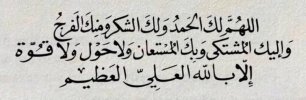 اللهُمَّ لَكَ الْحَمْدُ وَلَكَ الشُّكْرُ وَمِنْكَ الْفَرَجُ
وَإِلَيْكَ الْمُشْتَكَى وَبِكَ الْمُسْتَعَانُ وَلَا حَوْلَ وَلَا قُوَّةَ
إِلَّا بِاللهِ الْعَلِيِّ الْعَظِيمِ